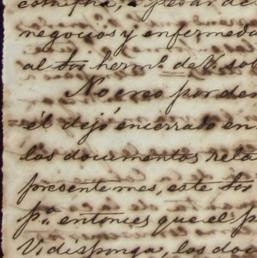 negocios y enfermeda
al Sor. hermo. de V. sob
No creo por dem
él dejó encerrado en
los documentos rela
presente mes, este Sor
pa. entonces que el p
V. disponga, los doc